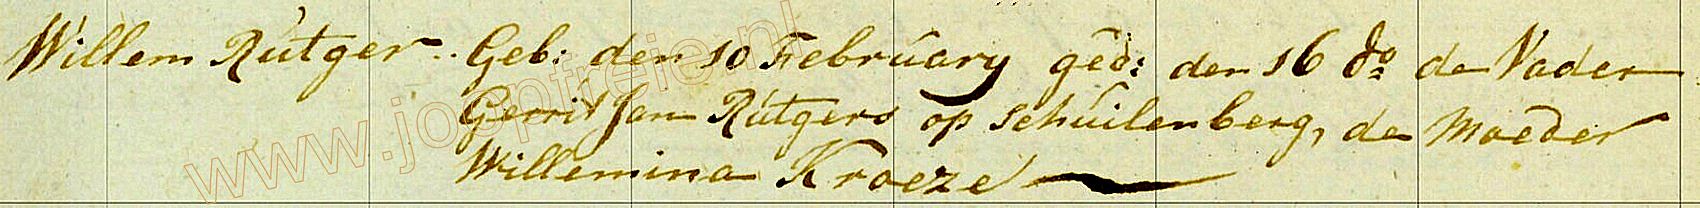 Willem Rutger. Geb: den 10 February ged: den 16 do de Vader
Gerrit Jan Rutgers op Schuilenberg, de Moeder
Willemina Kroeze
www.jooptreie.nl